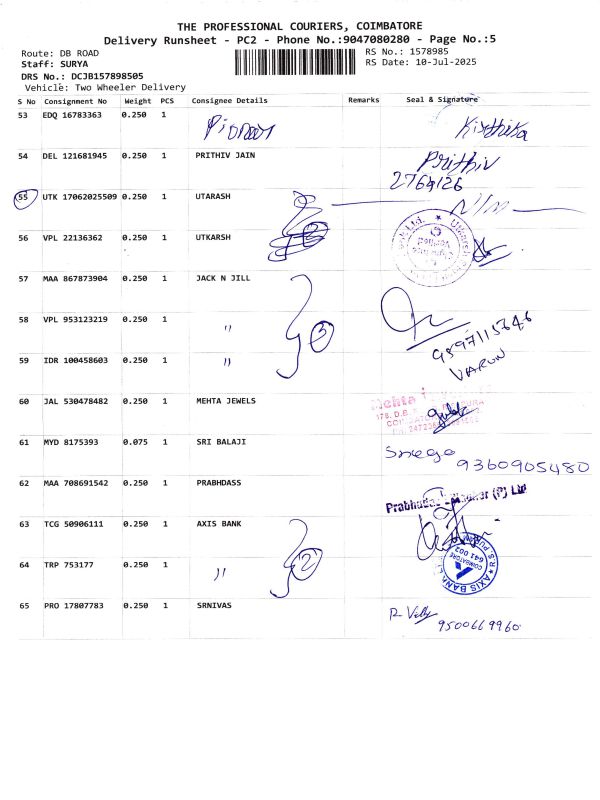 THE PROFESSIONAL COURIERS, COIMBATORE
Delivery Runsheet - PC2 - Phone No.:9047080280 - Page No.:5
Route: DB ROAD
RS No.: 1578985
Staff: SURYA
RS Date: 10-Jul-2025
DRS No.: DCJB157898505
Vehicle: Two Wheeler Delivery
S No Consignment No Weight PCS Consignee Details Remarks Seal & Signature
53 EDQ 16783363 0.250 1 Pioneer Kirthika
54 DEL 121681945 0.250 1 PRITHIV JAIN Prithiv
55 UTK 17062025509 0.250 1 UTARASH
56 VPL 22136362 0.250 1 UTKARSH 2
57 MAA 867873904 0.250 1 JACK N JILL
58 VPL 953123219 0.250 1 " 3
59 IDR 100458603 0.250 1 "
VARUN
60 JAL 530478482 0.250 1 MEHTA JEWELS Mehta
61 MYD 8175393 0.075 1 SRI BALAJI
9360905480
62 MAA 708691542 0.250 1 PRABHDASS (P) Ltd
63 TCG 50906111 0.250 1 AXIS BANK
64 TRP 753177 0.250 1 " 2 AXIS BANK R.S. PURAM COIMBATORE 641 002
65 PRO 17807783 0.250 1 SRNIVAS
9500669960